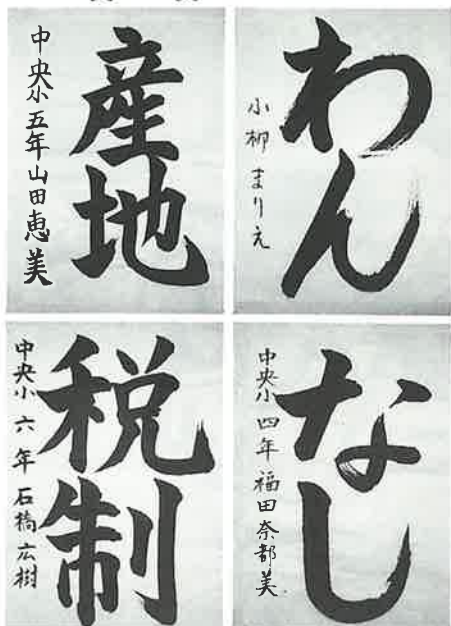 わん
小柳 まりえ
産地
中央小五年山田恵美
なし
中央小 四年 福田奈都美
税制
中央小 六年 石橋広樹